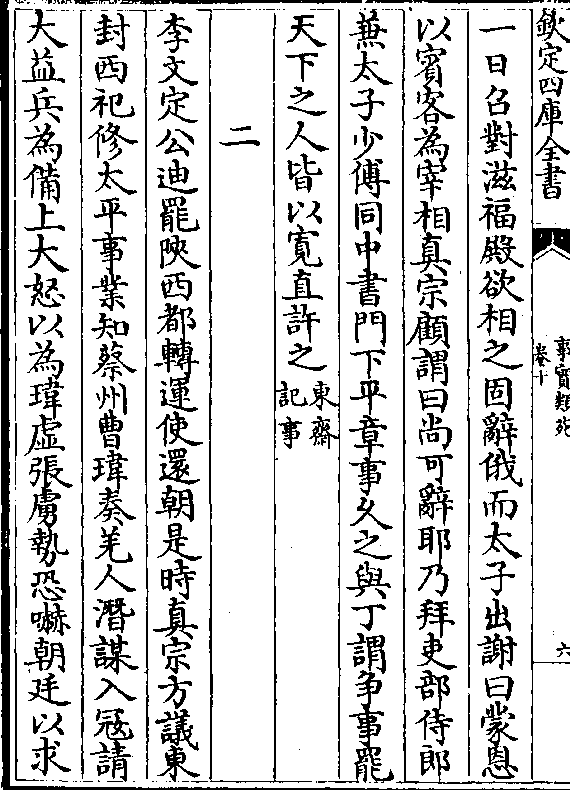 欽定四庫全書
事實類苑
卷十
六
一日召對滋福殿欲相之固辭俄而太子出謝曰蒙恩
以賓客為宰相真宗顧謂曰尚可辭耶乃拜吏部侍郎
蕪太子少傅同中書門下平章事久之與丁謂争事罷
天下之人皆以寛直許之東齋
記事
二
李文定公迪罷陜西都轉運使還朝是時真宗方議東
封西祀修太平事業知蔡州曹瑋奏羌人潛謀入冦請
大益兵為備上大怒以為瑋虛張虜勢恐嚇朝廷以求